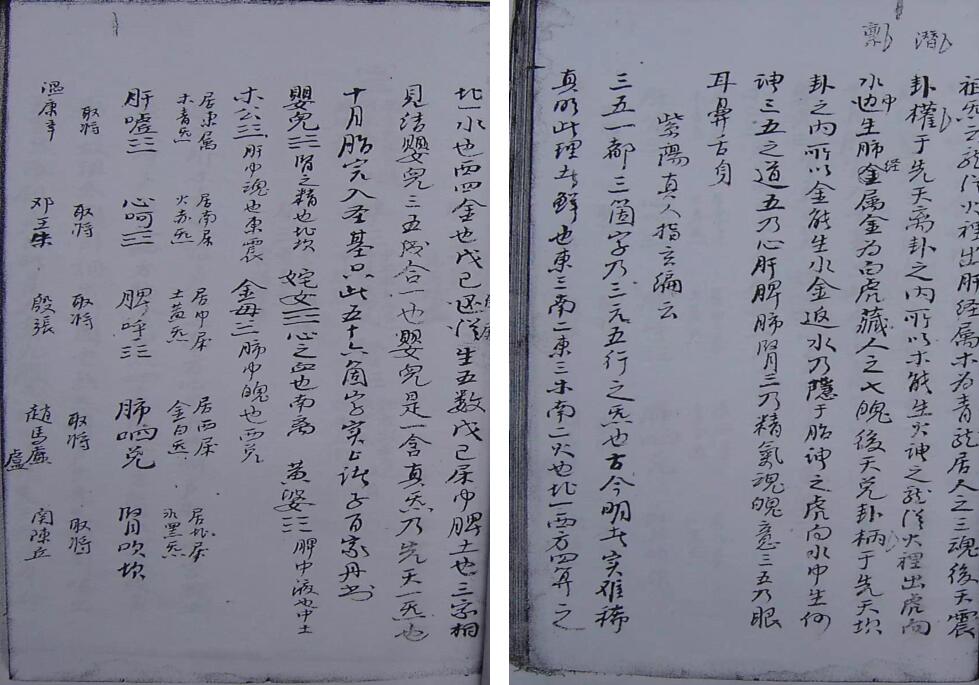 祖炁之龍從火裡出肝经属木为青龍居人之三魂後天震
卦權于先天离卦之内所以木能生火神之龍從火裡出虎向
水中也生肺经属金为白虎藏人之七魄後天兑卦柄于先天坎
卦之内所以金能生水金返水乃隱于胎神之虎向水中生何
谓三五之道五乃心肝脾肺腎三乃精氣魂魄意三五乃眼
耳鼻舌身
紫陽真人指玄編云
三五一都三箇字乃三元五行之炁也古今明者实难稀
真明此理者鮮也東三南二東三木南二火也北一西方四算之
北一水也西四金也戊己还從生五数戊己居中脾土也三家相
見結嬰兒三五战合一也嬰兒是一含真炁乃先天一炁也
十月胎完入圣基只此五十六箇字实上諸子百家丹书
嬰兒三腎之精也北坎 姹女三心之血也南离 黄婆三脾中液也中土
木公三肝中魂也東震 金母三肺中魄也西兑
居東属木青炁 居南属火赤炁 居中属土黄炁 居西属金白炁 居北属水黑炁
肝嘘三 心呵三 脾呼三 肺呬兑 腎吹坎
取将 取将 取将 取将 取将
温康辛 邓王朱 殷張 趙馬盧 関陳丘
盧
潛
禀